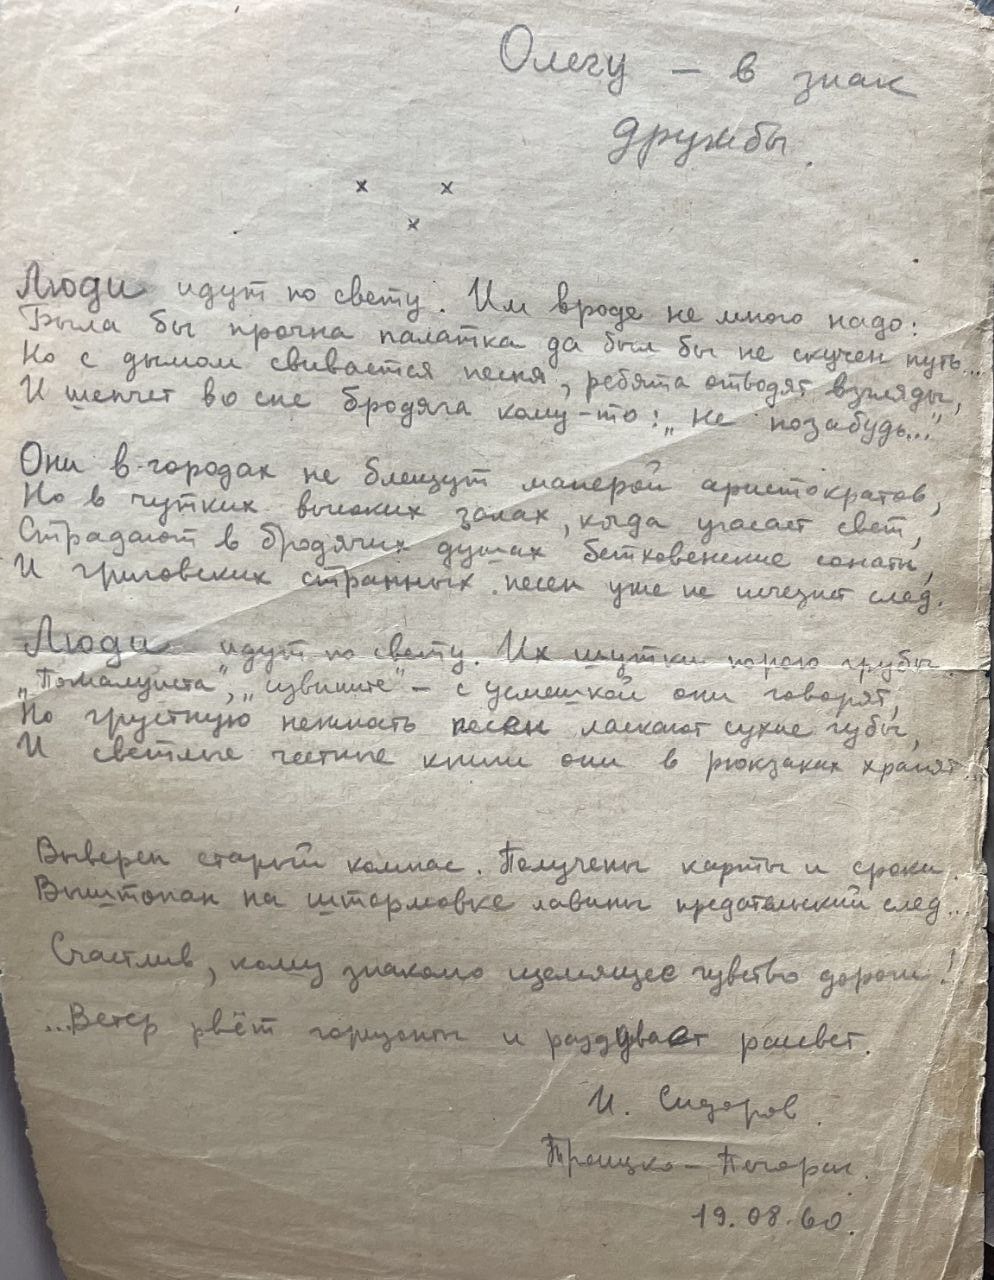 Олегу – в знак
дружбы.
х х
х
Люди идут по свету. Им вроде не много надо:
Была бы прочна палатка да был бы не скучен путь...
Но с дымом свивается песня, ребята отводят взгляды,
И шепчет во сне бродяга кому-то: „Не позабудь..."
Они в городах не блещут манерой аристократов,
Но в чутких высоких залах, когда угасает свет,
Страдают в бродячих душах бетховенские сонаты,
И григовских странных песен уже не исчезнет след.
Люди идут по свету. Их шутки порою грубы.
„Пожалуйста", „извините" – с усмешкой они говорят,
Но грустную нежность песен ласкают сухие губы,
И светлые честные книги они в рюкзаках хранят...
Выверен старый компас. Получены карты и сроки.
Выштопан на штормовке лавины предательский след...
Счастлив, кому знакомо щемящее чувство дороги!
...Ветер рвёт горизонты и раздувает рассвет.
И. Сидоров.
Троицко-Печорск.
19.08.60.